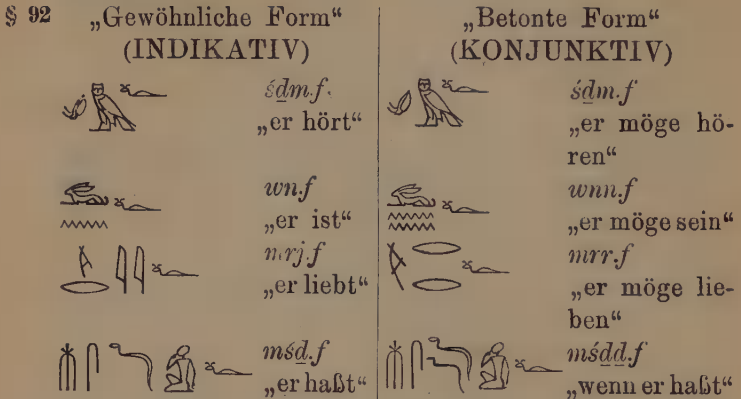 § 92
„Gewöhnliche Form“
(INDIKATIV)
𓄔𓅓𓆑 śḏm.f
„er hört“
𓃹𓈖𓆑 wn.f
„er ist“
𓌸𓂋𓇋𓇋𓆑 mrj.f
„er liebt“
𓄟𓋴𓆓𓀁𓆑 mśḏ.f
„er haßt“
„Betonte Form“
(KONJUNKTIV)
𓄔𓅓𓆑 śḏm.f
„er möge hö-
ren“
𓃹𓈖𓈖𓆑 wnn.f
„er möge sein“
𓌸𓂋𓂋𓆑 mrr.f
„er möge lie-
ben“
𓄟𓋴𓆓𓆓𓀁𓆑 mśḏḏ.f
„wenn er haßt“